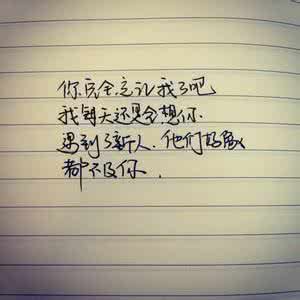 你完全忘记我了吧
我每天还是会想你.
遇到了新人.他们好像
都不及你.